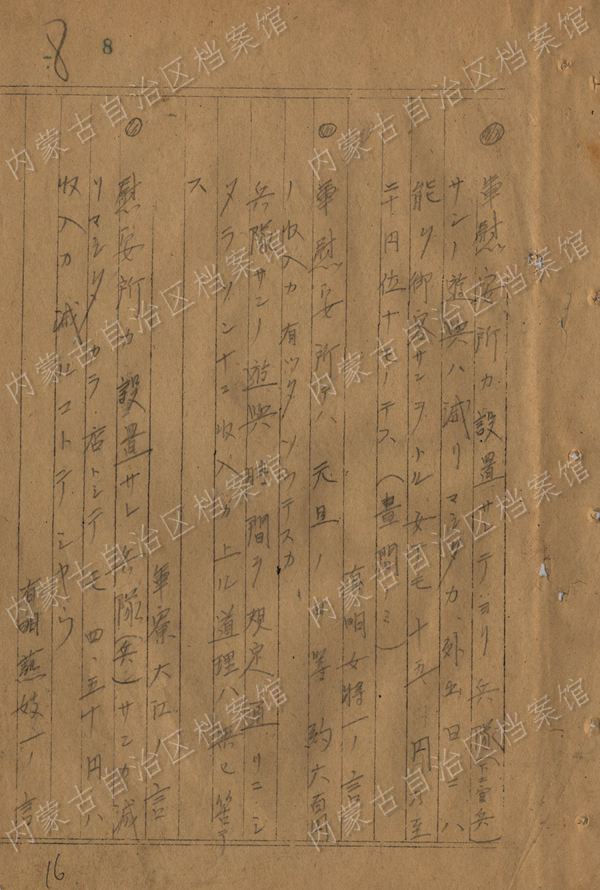 8
8
軍慰安所カ設置サテヨリ兵隊(憲兵)
サンノ遊興ハ減リマシタカ、外出日ニハ
能ク御客サンヲトル女モ十五円乃至
二十円位ナモノテス(晝間ノミ)
有明女將一ノ言
軍慰安所テハ元旦ノ 等約六百
ノ收入カ有ツタソウテスカ
兵隊サンノ遊興時間ヲ規定通リニシ
タラソンナニ收入カ上ル道理ハ無イ筈テ
ス
軍寮大江ノ言
慰安所カ設置サレ兵隊(兵)サンカ減
リマシタカラ店トシテモ四、五十円ハ
收入カ減ルコトテシヤウ
有明藝妓一ノ言
16
内蒙古自治区档案馆